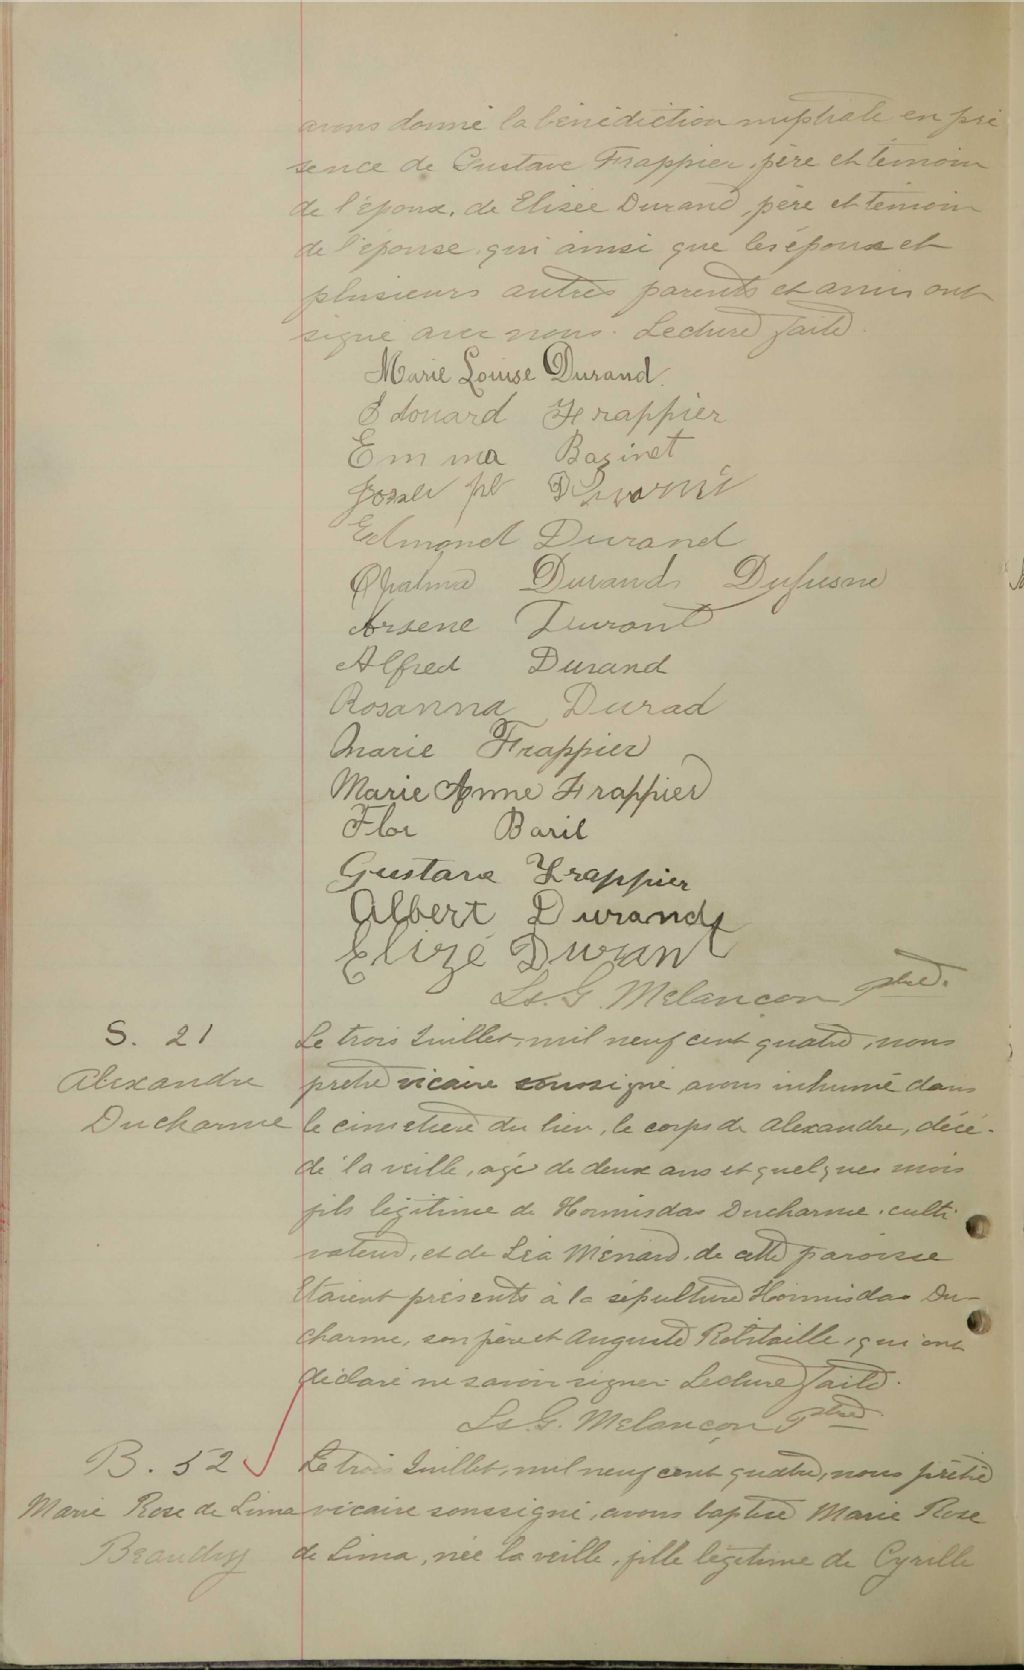 avons donné la bénédiction nuptiale en pré
sence de Gustave Frappier, père et témoin
de l'époux, de Elisée Durand, père et témoin
de l'épouse, qui ainsi que les époux et
plusieurs autres parents et amis ont
signé avec nous. Lecture faite.
Marie Louise Durand
Edouard Frappier
Emma Bazinet
Edmond Durand
Durand Dufresne
Arsene Durant
Alfred Durand
Rosanna Durad
Marie Frappier
Marie Anne Frappier
Flor Baril
Gustave Frappier
Albert Durand
Elizé Durant
Ls. G. Melançon ptre.
S. 21
Alexandre
Ducharme
Le trois Juillet, mil neuf cent quatre, nous
prêtre vicaire soussigné avons inhumé dans
le cimetière du lieu, le corps de Alexandre, décé-
dé la veille, agé de deux ans et quelques mois
fils légitime de Hormisdas Ducharme, culti
vateur, et de Léa Ménard, de cette paroisse
Etaient présents à la sépulture Hormisdas Du-
charme, son père et Auguste Robitaille, qui ont
déclaré ne savoir signer. Lecture faite.
Ls. G. Melançon ptre
B. 52
Marie Rose de Lima
Beaudry
Le trois Juillet, mil neuf cent quatre, nous prêtre
vicaire soussigné, avons baptisé Marie Rose
de Lima, née la veille, fille légitime de Cyrille